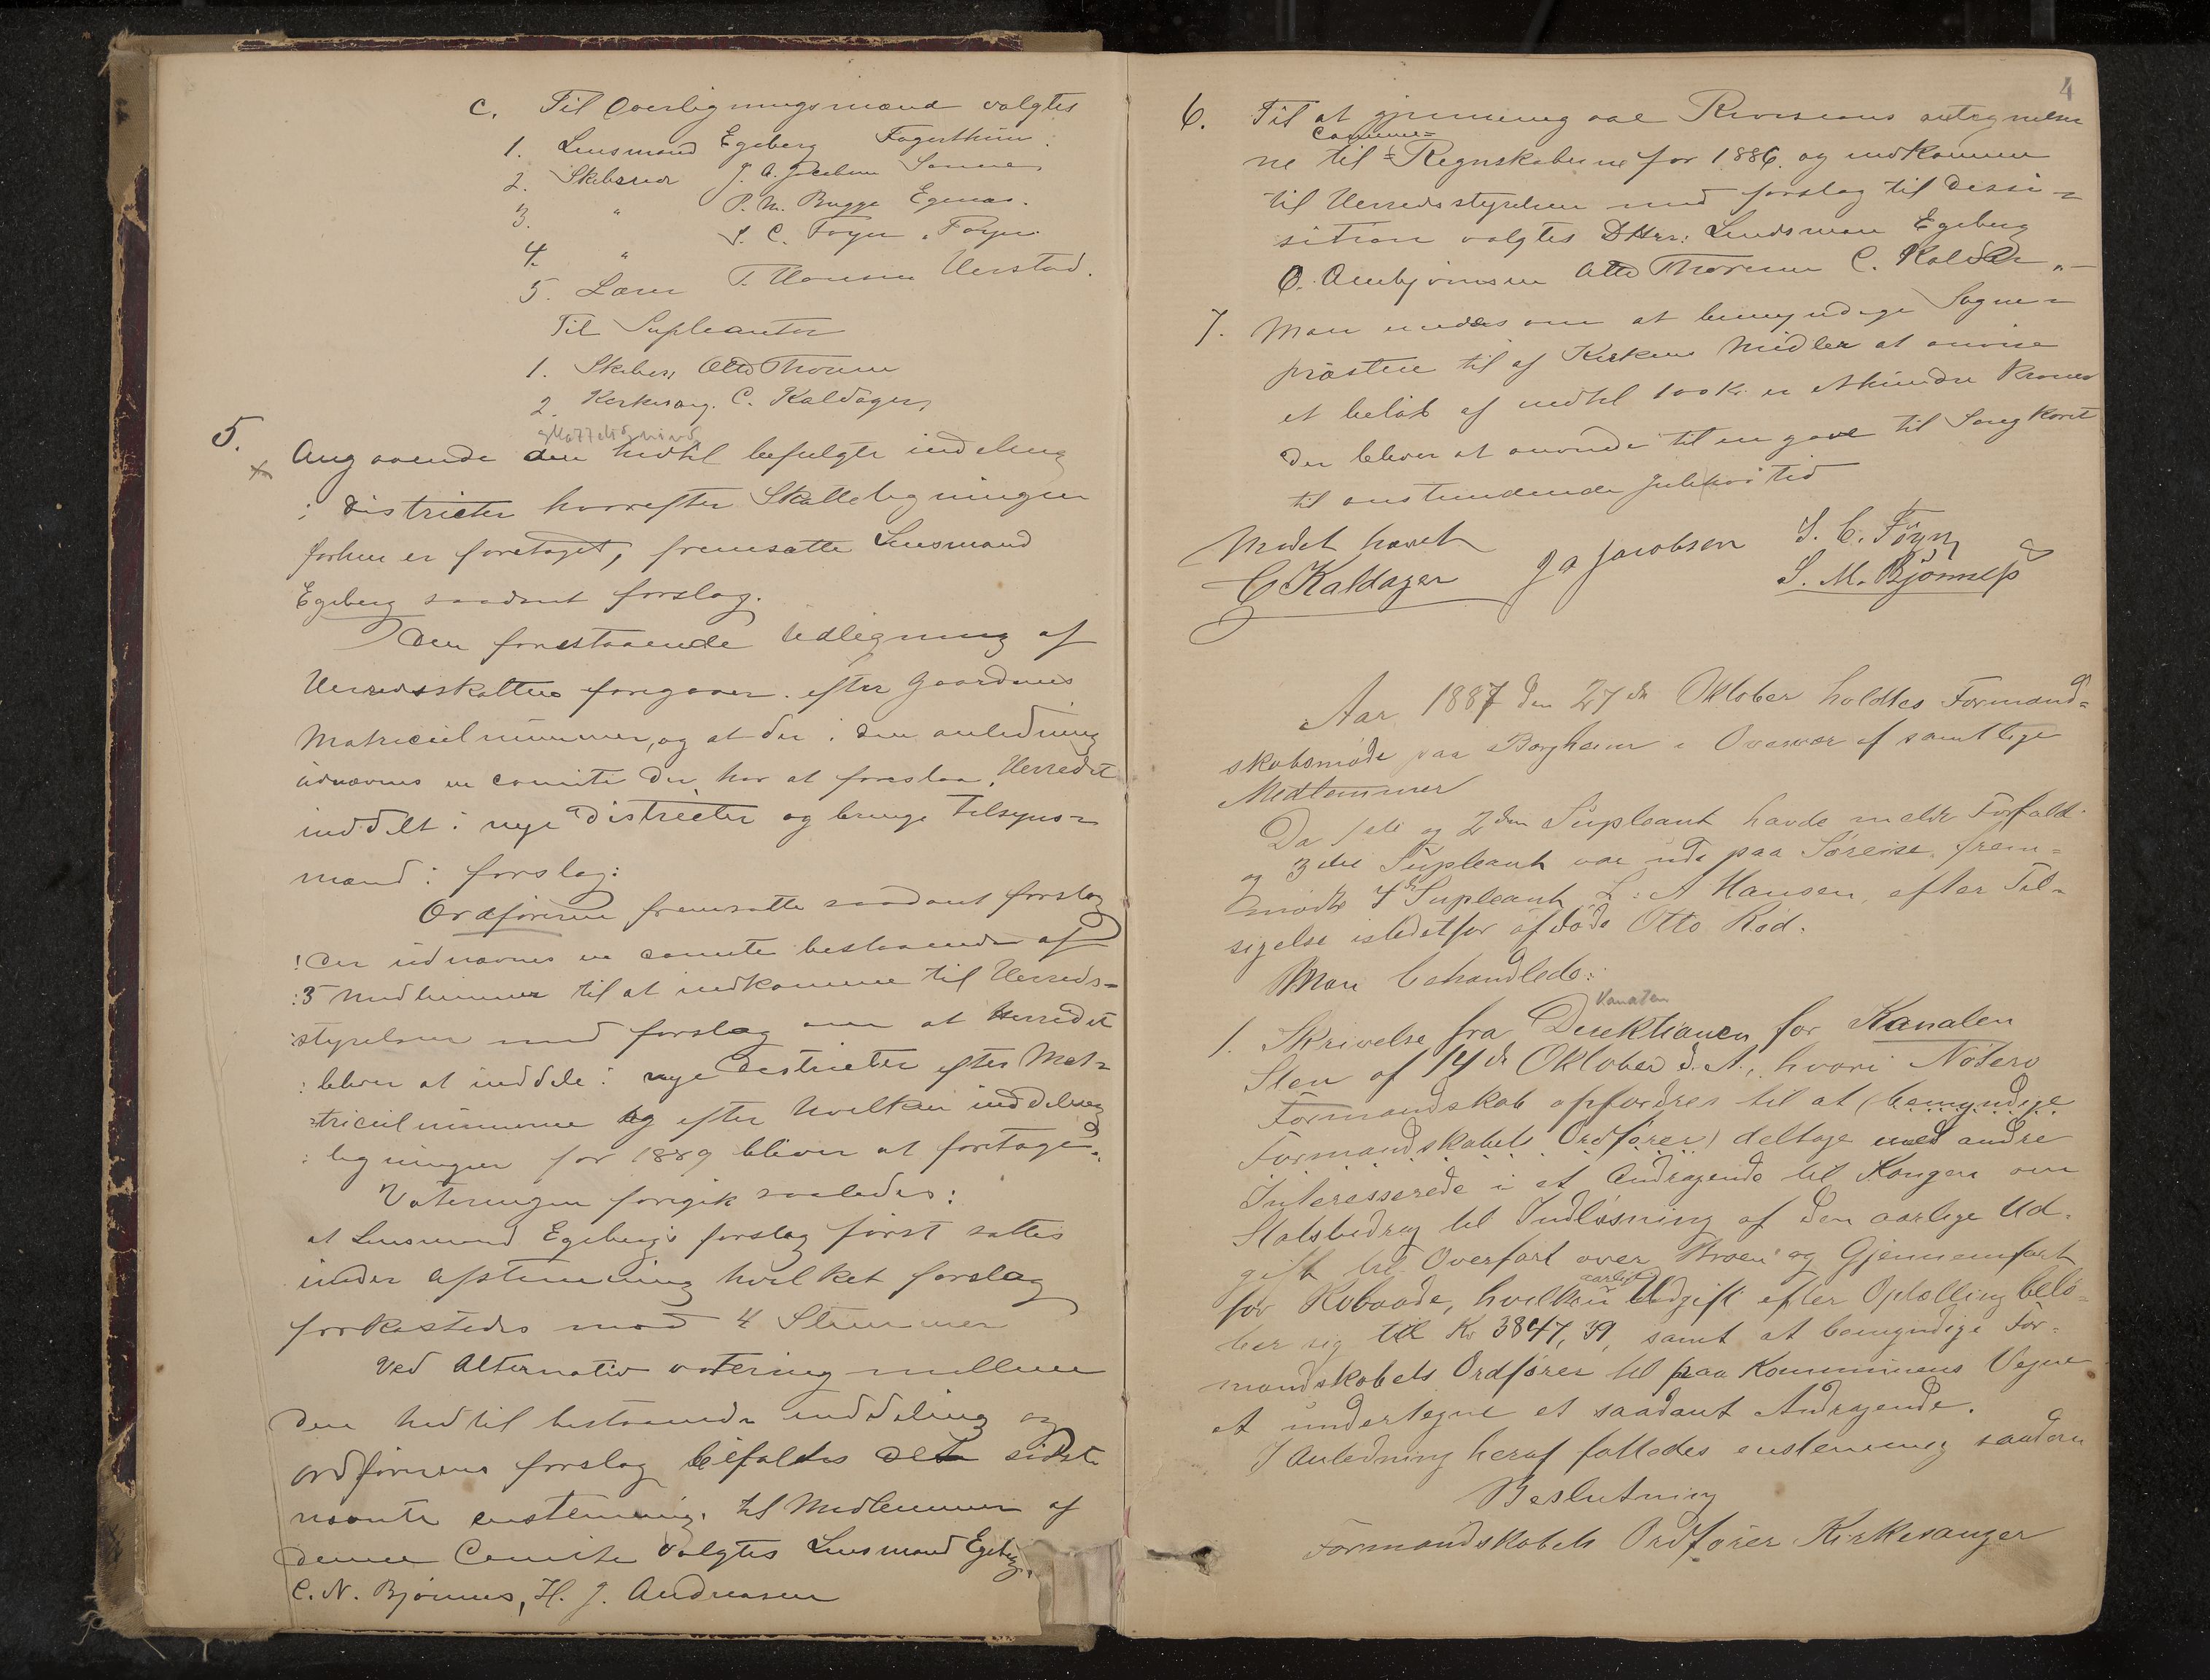 c. Til Overligningsmænd valgtes
1. Lensmand Egeberg Fagerthun
2. Skibsredr J. A. Jacobsen
3. " P. M. Bugge Egenæs.
4. " S. C. Foyn, Foyn
5. Lærer T. Hansen Herstad.
Til Supleanter
1. Skibsr. Otto Thoresen
2. Kirkesang. C. Kaldager,
5. Angaaende den hidtil befulgte inddeling
i districter hvorefter Skatteligningen
forhen er foretaget, fremsatte Lensmand
Egeberg saadant forslag.
Den forestaaende Udligning af
Herredsskatten foregaar efter Gaardenes
Matriculnummer, og at der i den anledning
udnævnes en comite der har at foreslaa Herredet
inddelt i nye Districter og bringe tilsyns=
mænd i forslag:
Ordføreren fremsatte saadant forslag
Der udnævnes en comite bestaaende af
3 medlemmer til at indkomme til Herreds=
styrelsen med forslag om at Herredet
bliver at inddele i nye Districter efter Mat=
riculnumerne og efter hvilken inddeling
ligningen for 1889 bliver at foretage.
Voteringen foregik saaledes:
at Lensmand Egebergs forslag først sattes
under afstemning hvilket forslag
forkastedes mod 4 Stemmer
Ved Alternativ votering mellem
den hidtil bestaaende inddeling og
ordførerens forslag bifaldtes det sidst
nævnte enstemmig. til Medlemmer af
denne Comite valgtes Lensmand Egeberg,
C. N. Bjønnes, H. J. Andreasen
4
6. Til at gjennemgaa Revisions antegnelser
Comune=
ne til Regnskaberne for 1886. og indkomme
til Herredsstyrelsen med forslag til Desi=
sition valgtes DHrr: Lendsman Egeberg
O. Arnbjørnsen Otto Thoresen C. Kaldager
7. Man enedes om at bemyndige Sogne=
præsten til af Kirkens Midler at anvise
et beløb af indtil 100 Kr. er et hundre Kroner
der bliver at anvende til en gave til Sangkoret
til anstundende Julehøitid
Mødet hævet
C Kaldager J A Jacobsen S. C. Föyn
S. M. Bjønness
Aar 1887 den 27de Oktober holdtes Formand=
skabsmøde paa Borgheim i Overvær af samtlige
Medlemmer
Da 1ste og 2den Supleant havde meldt Forfald
og 3die Supleant var ude paa Søreise, frem=
mødte 4de Supleant L. A Hansen, efter Til=
sigelse istedetfor afdøde Otto Rød.
Man behandlede:
Kanalen
1. Skrivelse fra Direktionen for Kanalen
Sten af 14de Oktober d. A., hvori Nøterø
Formandskab opfordres til at (bemyndige
Formandskabets Ordfører) deltage med andre
Interesserede i et Andragende til Kongen om
Statsbidrag til Indløsning af den aarlige Ud=
gift til Overfart over Broen og Gjennemfart
aarlige
for Robaade, hvilken Udgift efter Optælling belø=
ber sig til Kr 3847,39, samt at bemyndige For=
mandskabets Ordfører til paa Kommunens Vegne
at undertegne et saadant Andragende.
I Anledning heraf fattedes enstemmig saadan
Beslutning
Formandskabets Ordfører Kirkesanger